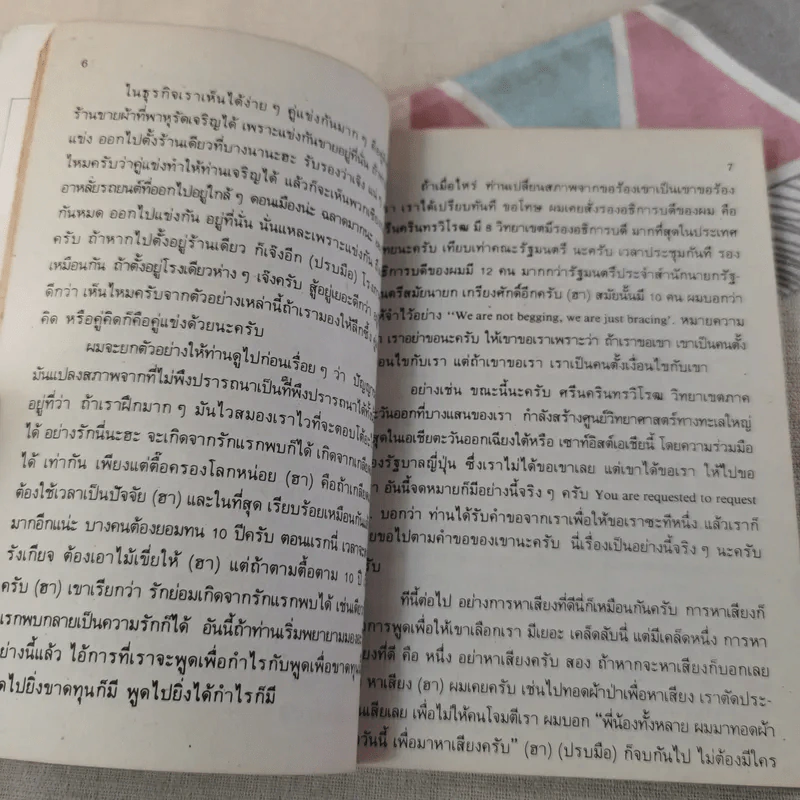 6
ในธุรกิจเราเห็นได้ง่าย ๆ คู่แข่งกันมาก ๆ
ร้านขายผ้าที่พาหุรัดเจริญได้ เพราะแข่งกันขายอยู่ที่นั่น
แข่ง ออกไปตั้งร้านเดียวที่บางนานะฮะ รับรองว่าเจ๊ง
ไหมครับว่าคู่แข่งทำให้ท่านเจริญได้ แล้วก็จะเห็นพวก
อาหลั่ยรถยนต์ที่ออกไปอยู่ใกล้ ๆ ดอนเมืองน่ะ ฉลาดมากนะ
กันหมด ออกไปแข่งกัน อยู่ที่นั่น นั่นแหละเพราะแข่งกัน
ครับ ถ้าหากไปตั้งอยู่ร้านเดียว ก็เจ๊งอีก (ปรบมือ)
เหมือนกัน ถ้าตั้งอยู่โรงเดียวห่าง ๆ เจ๊งครับ สู้อยู่เยอะดีกว่า
ดีกว่า เห็นไหมครับจากตัวอย่างเหล่านี้ถ้าเรามองให้ลึกซึ้ง
คิด หรือคู่คิดก็คือคู่แข่งด้วยนะครับ
ผมจะยกตัวอย่างให้ท่านดูไปก่อนเรื่อย ๆ ว่า
มันแปลงสภาพจากที่ไม่พึงปรารถนาเป็นที่พึงปรารถนาได้
อยู่ที่ว่า ถ้าเราฝึกมาก ๆ มันไวสมองเราไวที่จะตอบ
ได้ อย่างรักนี่นะฮะ จะเกิดจากรักแรกพบก็ได้ เกิดจาก
ได้ เท่ากัน เพียงแต่ตื๊อครองโลกหน่อย (ฮา) คือถ้า
ต้องใช้เวลาเป็นปัจจัย (ฮา) และในที่สุด เรียบร้อยเหมือนกัน
มากอีกแน่ะ บางคนต้องยอมทน 10 ปีครับ ตอนแรกนี่
รังเกียจ ต้องเอาไม้เขี่ยให้ (ฮา) แต่ถ้าตามตื๊อตาม 10 ปี
ครับ (ฮา) เขาเรียกว่า รักย่อมเกิดจากรักแรกพบได้
แรกพบกลายเป็นความรักก็ได้ อันนี้ถ้าท่านเริ่มพยายามมอง
ย่างนี้แล้ว ไอ้การที่เราจะพูดเพื่อกำไรกับพูดเพื่อขาดทุน
ดไปยิ่งขาดทุนก็มี พูดไปยิ่งได้กำไรก็มี
7
ถ้าเมื่อไหร่ ท่านเปลี่ยนสภาพจากขอร้องเขาเป็นเขาขอร้อง
เรา เราได้เปรียบทันที ขอโทษ ผมเคยสั่งรองอธิการบดีของผม คือ
ศรีนครินทรวิโรฒ มี 8 วิทยาเขตมีรองอธิการบดี มากที่สุดในประเทศ
ไทยนะครับ เทียบเท่าคณะรัฐมนตรี นะครับ เวลาประชุมกันที รอง
อธิการบดีของผมมี 12 คน มากกว่ารัฐมนตรีประจำสำนักนายกรัฐ-
มนตรีสมัยนายก เกรียงศักดิ์อีกครับ (ฮา) สมัยนั้นมี 10 คน ผมบอกว่า
ให้จำไว้อย่าง "We are not begging, we are just bracing'. หมายความ
เราอย่าขอนะครับ ให้เขาขอเราเพราะว่า ถ้าเราขอเขา เขาเป็นคนตั้ง
เงื่อนไขกับเรา แต่ถ้าเขาขอเรา เราเป็นคนตั้งเงื่อนไขกับเขา
อย่างเช่น ขณะนี้นะครับ ศรีนครินทรวิโรฒ วิทยาเขตภาค
ตะวันออกที่บางแสนของเรา กำลังสร้างศูนย์วิทยาศาสตร์ทางทะเลใหญ่
สุดในเอเชียตะวันออกเฉียงใต้หรือ เซาท์อิสต์เอเชียนี้ โดยความร่วมมือ
องรัฐบาลญี่ปุ่น ซึ่งเราไม่ได้ขอเขาเลย แต่เขาได้ขอเรา ให้ไปขอ
อันนี้จดหมายก็มีอย่างนี้จริง ๆ ครับ You are requested to request
บอกว่า ท่านได้รับคำขอจากเราเพื่อให้ขอเราซะทีหนึ่ง แล้วเราก็
ขอไปตามคำขอของเขานะครับ นี่เรื่องเป็นอย่างนี้จริง ๆ นะครับ
ครับ
ทีนี้ต่อไป อย่างการหาเสียงที่ดีนี่ก็เหมือนกันครับ การหาเสียงก็
การพูดเพื่อให้เขาเลือกเรา มีเยอะ เคล็ดลับนี่ แต่มีเคล็ดหนึ่ง การหา
งที่ดี คือ หนึ่ง อย่าหาเสียงครับ สอง ถ้าหากจะหาเสียงก็บอกเลย
หาเสียง (ฮา) ผมเคยครับ เช่นไปทอดผ้าป่าเพื่อหาเสียง เราตัดประ-
นเสียเลย เพื่อไม่ให้คนโจมตีเรา ผมบอก "พี่น้องทั้งหลาย ผมมาทอดผ้า
วันนี้ เพื่อมาหาเสียงครับ" (ฮา) (ปรบมือ) ก็จบกันไป ไม่ต้องมีใคร